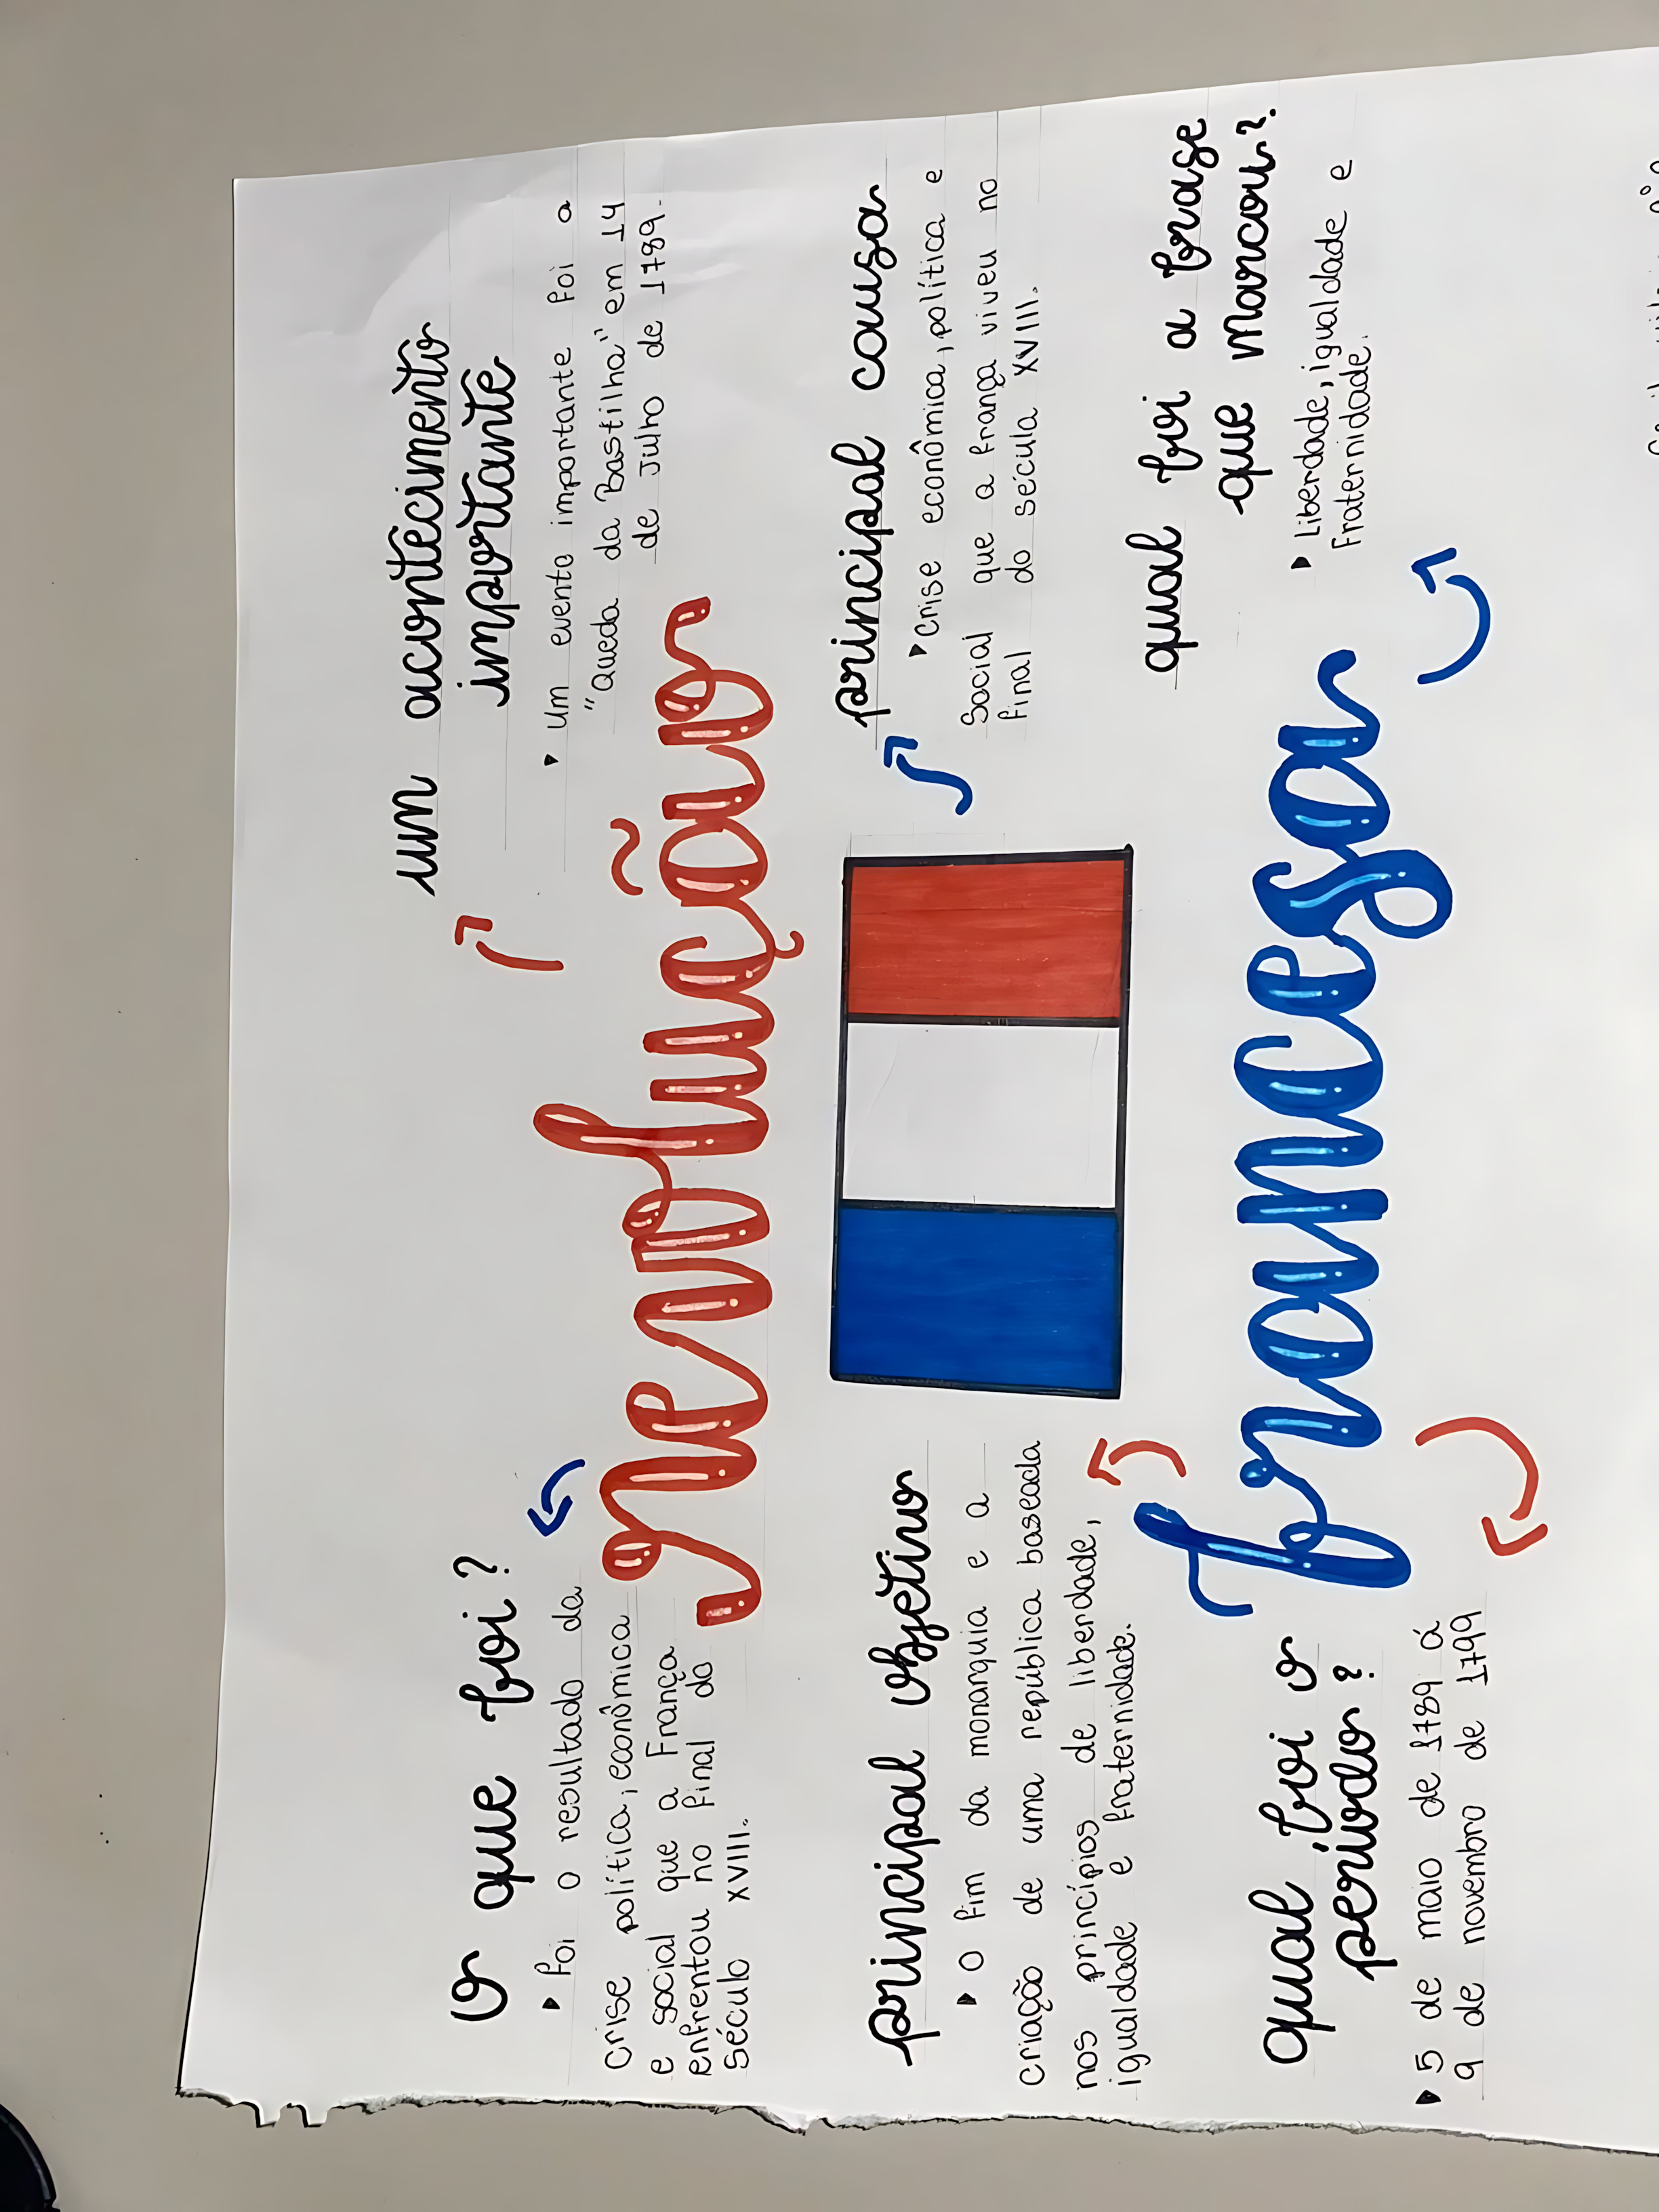 O que foi?
▸ Foi o resultado da
crise política, econômica
e social que a França
enfrentou no final do
século XVIII.
um acontecimento
importante
▸ um evento importante foi a
"Queda da Bastilha" em 14
de Julho de 1789.
revolução
principal objetivo
▸ O fim da monarquia e a
criação de uma república baseada
nos princípios de liberdade,
igualdade e fraternidade.
principal causa
▸ crise econômica, política e
social que a França viveu no
final do sécula XVIII.
francesa
qual foi o
periodo?
▸ 5 de maio de 1789 á
9 de novembro de 1799
qual foi a frase
que marcou?
▸ Liberdade, igualdade e
Fraternidade.